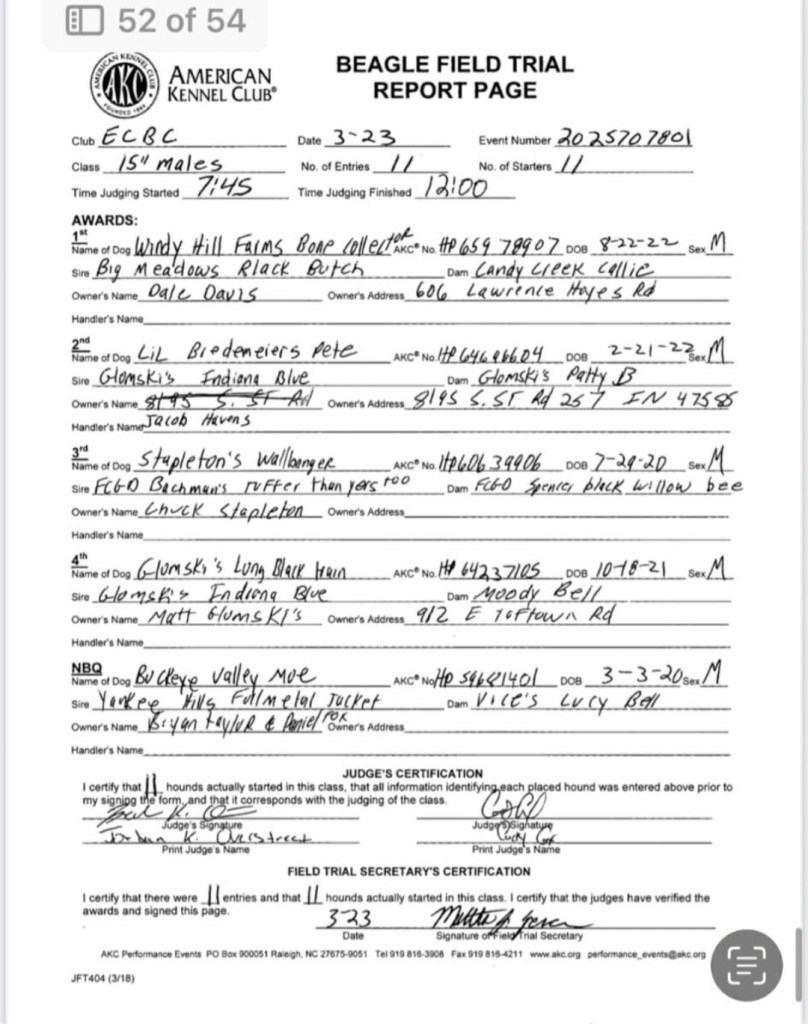 52 of 54
AMERICAN KENNEL CLUB FOUNDED 1884
AKC
AMERICAN
KENNEL CLUB®
BEAGLE FIELD TRIAL
REPORT PAGE
Club ECBC Date 3-23 Event Number 2025707801
Class 15" males No. of Entries 11 No. of Starters 11
Time Judging Started 7:45 Time Judging Finished 12:00
AWARDS:
1st
Name of Dog Windy Hill Farms Bone Collector AKC® No. HP659 78907 DOB 8-22-22 Sex M
Sire Big Meadows Black Butch Dam Candy Creek Callie
Owner's Name Dale Davis Owner's Address 606 Lawrence Hayes Rd
Handler's Name
2nd
Name of Dog LiL Biedeneiers Pete AKC® No. DOB 2-21-22 Sex M
Sire Glomski's Indiana Blue Dam Glomski's Patty B
Owner's Name 8195 S. ST Rd Owner's Address 8195 S. ST Rd 257 IN 47585
Handler's Name Jacob Havens
3rd
Name of Dog Stapleton's Wallbanger AKC® No. HP606 39906 DOB 7-29-20 Sex M
Sire FCGD Bachman's ruffer than yers too Dam FCGD Spencer black willow bee
Owner's Name Chuck Stapleton Owner's Address
Handler's Name
4th
Name of Dog Glomski's Long Black train AKC® No. HP 64237105 DOB 10-18-21 Sex M
Sire Glomski's Indiana Blue Dam Moody Bell
Owner's Name Matt Glomski's Owner's Address 912 E Rd
Handler's Name
NBQ
Name of Dog Buckeye Valley Moe AKC® No. HP 59681401 DOB 3-3-20 Sex M
Sire Yankee Hills Fullmetal Jacket Dam Vice's Lucy Bell
Owner's Name Bryan Taylor & Daniel Fox Owner's Address
Handler's Name
JUDGE'S CERTIFICATION
I certify that 11 hounds actually started in this class, that all information identifying each placed hound was entered above prior to
my signing the form, and that it corresponds with the judging of the class.
Judge's Signature Judge's Signature
K. Overstreet Cox
Print Judge's Name Print Judge's Name
FIELD TRIAL SECRETARY'S CERTIFICATION
I certify that there were 11 entries and that 11 hounds actually started in this class. I certify that the judges have verified the
awards and signed this page.
3-23
Date Signature of Field Trial Secretary
AKC Performance Events PO Box 900051 Raleigh, NC 27675-9051 Tel 919 816-3908 Fax 919 816-4211 www.akc.org performance_events@akc.org
JFT404 (3/18)